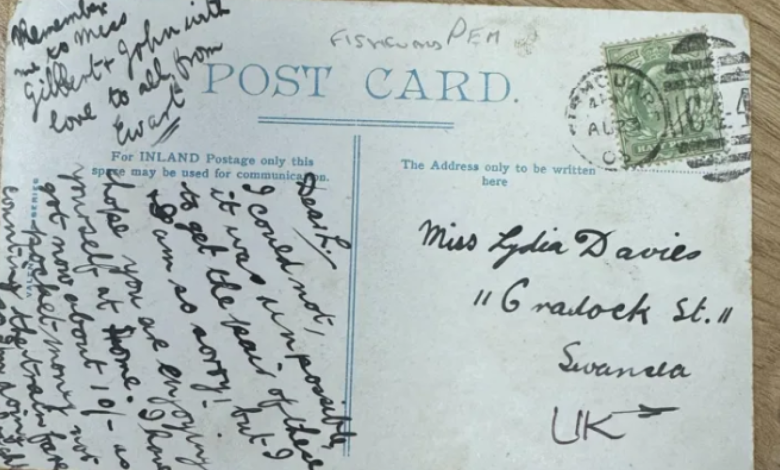 Remember
me to Miss
Gilbert & John with
love to all from
Ewart
FISHGUARD PEM
POST CARD.
For INLAND Postage only this
space may be used for communication.
The Address only to be written
here
FISHGUARD
AU 3
Dear L.
I could not,
it was unpossible
to get the pair of these
I am so sorry! but I
hope you are enjoying
yourself at home. I have
got now about 10/- as
pocket money not
counting the train fare
doing
Miss Lydia Davies
"Cradock St."
Swansea
UK
SERIES